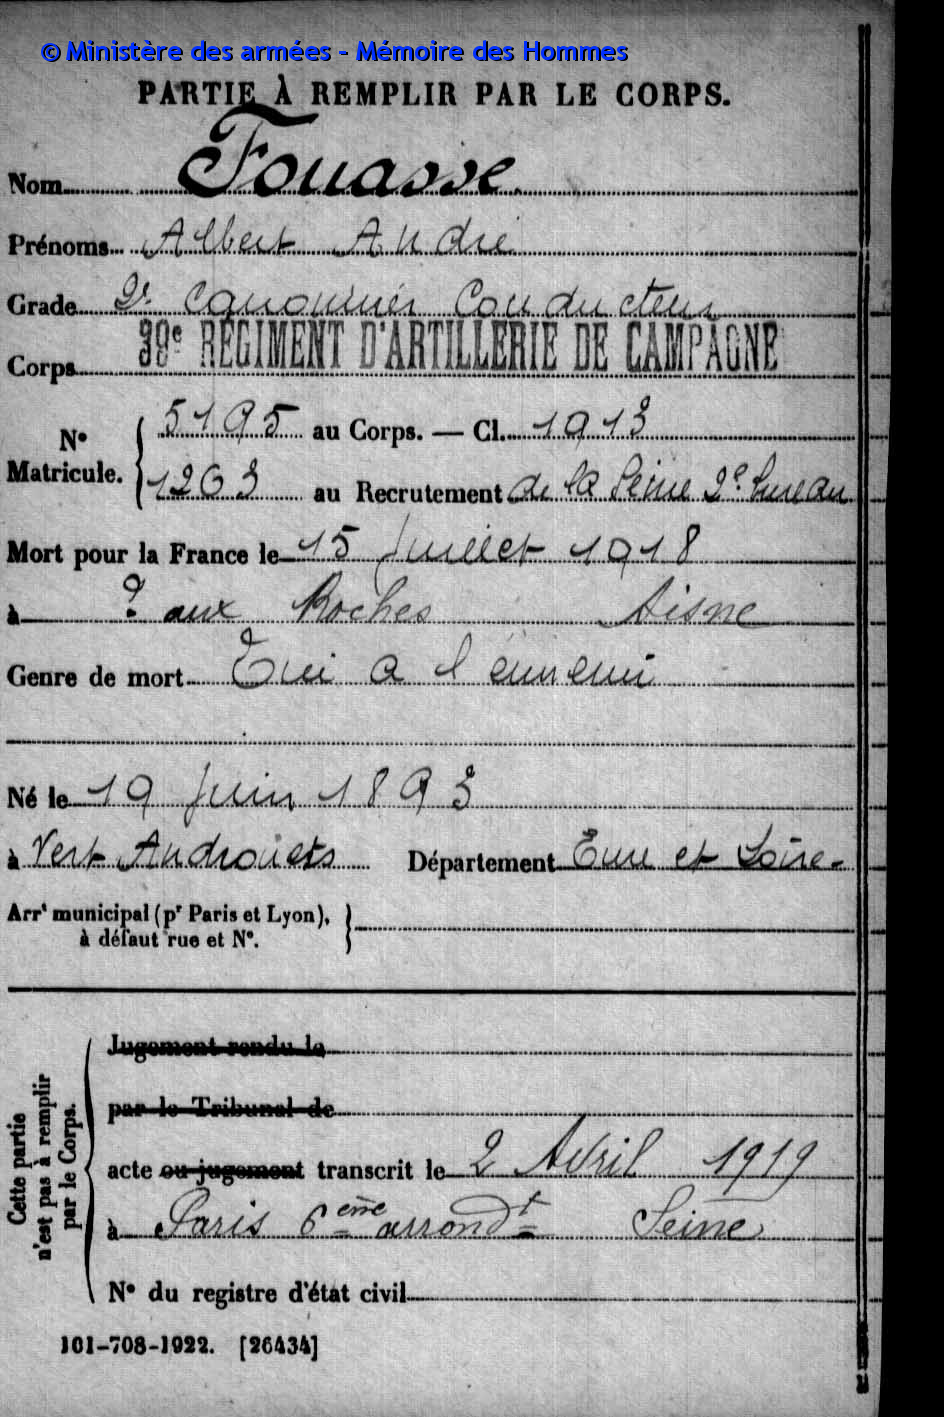 © Ministère des armées - Mémoire des Hommes
PARTIE À REMPLIR PAR LE CORPS.
Nom Fouasse
Prénoms Albert André
Grade 2e canonnier Conducteur
Corps 39e RÉGIMENT D'ARTILLERIE DE CAMPAGNE
N° Matricule. { 5195 au Corps. — Cl. 1913
1263 au Recrutement de la Seine 2e bureau
Mort pour la France le 15 Juillet 1918
à ? aux Roches Aisne
Genre de mort Tué à l'ennemi
Né le 19 Juin 1893
à Vert Département Eure et Loire
Arrt municipal (pr Paris et Lyon), à défaut rue et N°. }
Cette partie n'est pas à remplir par le Corps.
Jugement rendu le
par le Tribunal de
acte ou jugement transcrit le 2 Avril 1919
à Paris 6ème arrondt Seine
N° du registre d'état civil
101-708-1922. [26434]